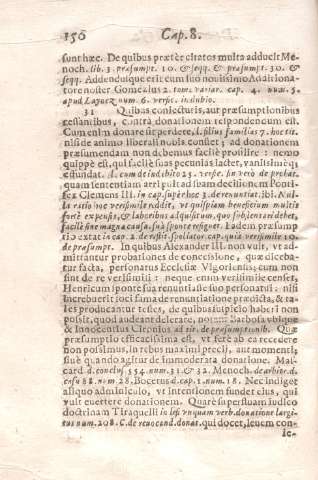 156 Cap. 8.
sunt hæc. De quibus præter citatos multa adducit Me-
noch. lib. 3. præsumpt. 10. & seqq. & præsumpt. 30. &
seqq. Addendusque erit cum suo novissimo Additiona-
tore noster Gomezius 2. tom. variar. cap. 4. num. 5.
apud Layoez num. 6. versic. in dubio.
31 Quibus coniecturis, aut præsumptionibus
cessantibus, contra donationem respondendum est.
Cum enim donare sit perdere, l. filius familias 7. hoc tit.
nisi de animo liberali nobis constet; ad donationem
præsumendam non debemus facile prosilire: nemo
quippè est, qui facilè suas pecunias iactet, vanissimèq;
effundat. l. cum de indebito 25. versic. sin vero de probat.
quam sententiam arripuit ad suam decisionem Ponti-
fex Clemens III. in cap. super hoc 5. de renuntiat. ibi. Nul-
la ratio hoc verisimile reddit, ut quispiam beneficium multis
fortè expensis, & laboribus adquisitum, quo sustentari debet,
facile sine magna causa, sua sponte resignet. Eadem præsump-
tio extat in cap. 2. de restit. spoliator. cap. quia verisimile 10.
de præsumpt. In quibus Alexander III. non vult, ut ad-
mittantur probationes de concessione, quæ diceba-
tur facta, personatus Ecclesiæ Vigoriensis, cum non
sint de re verisimili: neque enim verisimile censet,
Henricum sponte sua renuntiasse suo personatui: nisi
increbuerit loci fama de renuntiatione prædicta, & ta-
les producantur testes, de quibus suspicio haberi non
possit, quod audeant deierare, notant Barbosa ubique
& Innocentius Cironius ad tit. de præsumptionib. Quæ
præsumptio efficacissima est, ut ferè ab ea recedere
non possimus, in rebus maximi precij, aut momenti,
suè quando agitur de immoderata donatione. Mas-
card. d. conclus. 554. num. 31. & 32. Menoch. de arbitr. d.
casu 88. num 28. Bocerus d. cap. 1. num. 18. Nec indiget
alsquo adminiculo, ut intentionem fundet eius, qui
vult evertere donationem. Quare superfluam iudico
doctrinam Tiraquelli in lege unquam verb. donatione largi-
tus num. 208. C. de revocand. donat. qui docet, leuem con-
ie-